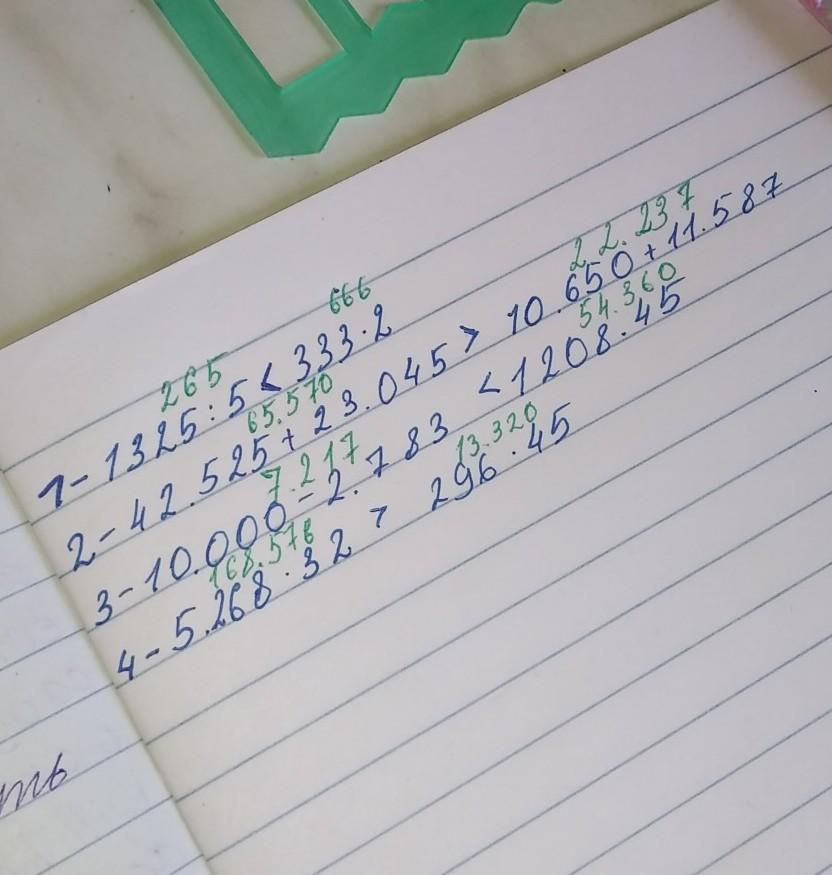 265 666
1-1325:5 < 333·2
65.570 22.237
2-42.525+23.045 > 10.650+11.587
7.217 54.360
3-10.000-2.783 < 1208·45
168.576 13.320
4-5.268·32 > 296·45
ть